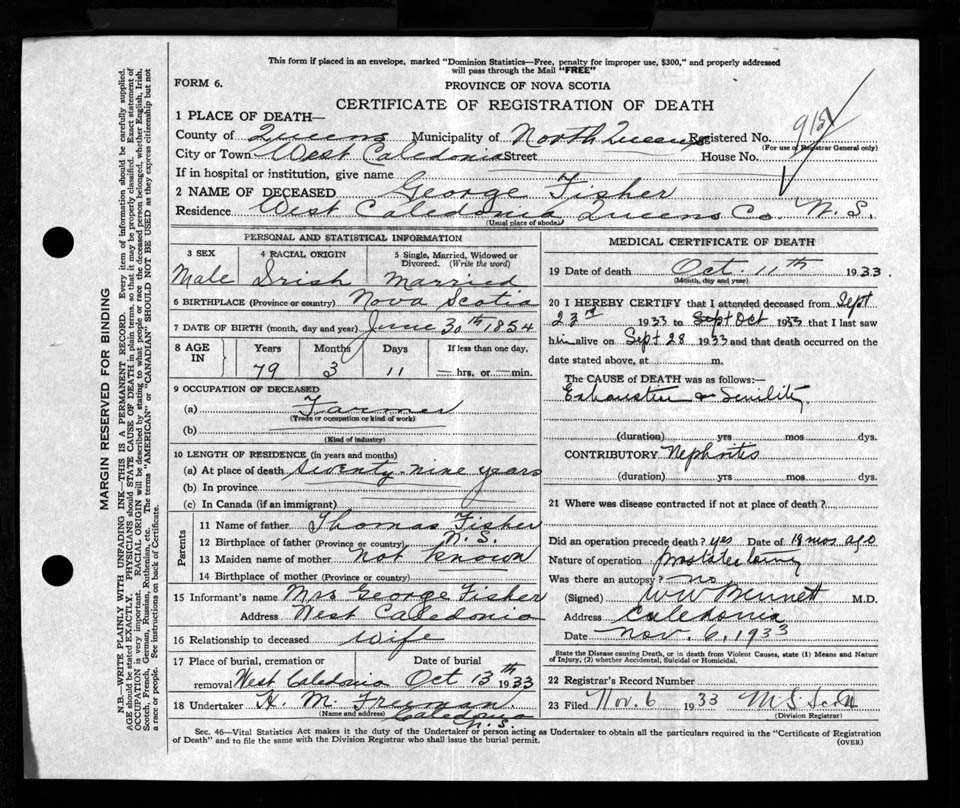 This form if placed in an envelope, marked "Dominion Statistics—Free, penalty for improper use, $300," and properly addressed
will pass through the Mail "FREE"
FORM 6.
PROVINCE OF NOVA SCOTIA
CERTIFICATE OF REGISTRATION OF DEATH
1 PLACE OF DEATH—
County of Queens Municipality of North Queens Registered No.
(For use of Registrar General only)
City or Town West Caledonia Street House No.
If in hospital or institution, give name
2 NAME OF DECEASED George Fisher
Residence West Caledonia Queens Co. N.S.
(Usual place of abode)
PERSONAL AND STATISTICAL INFORMATION
3 SEX 4 RACIAL ORIGIN 5 Single, Married, Widowed or
Divorced. (Write the word)
Male Irish Married
6 BIRTHPLACE (Province or country) Nova Scotia
7 DATE OF BIRTH (month, day and year) June 30th 1854
8 AGE IN Years Months Days If less than one day,
79 3 11 hrs. or min.
9 OCCUPATION OF DECEASED
(a) Farmer
(Trade or occupation or kind of work)
(b)
(Kind of industry)
10 LENGTH OF RESIDENCE (in years and months)
(a) At place of death Seventy-nine years
(b) In province
(c) In Canada (if an immigrant)
Parents
11 Name of father Thomas Fisher
12 Birthplace of father (Province or country) N.S.
13 Maiden name of mother not known
14 Birthplace of mother (Province or country)
15 Informant's name Mrs George Fisher
Address West Caledonia
16 Relationship to deceased Wife
17 Place of burial, cremation or Date of burial
removal West Caledonia Oct 13th 1933
18 Undertaker H. M. Freeman.
(Name and address) Caledonia
N.S.
MEDICAL CERTIFICATE OF DEATH
19 Date of death Oct. 11th 1933.
(Month, day and year)
20 I HEREBY CERTIFY that I attended deceased from Sept
23rd 1933 to Sept Oct 1933 that I last saw
him alive on Sept 28 1933 and that death occurred on
date stated above, at m.
The CAUSE OF DEATH was as follows:—
Exhaustion & Senility
(duration) yrs mos dys.
CONTRIBUTORY Nephritis
(duration) yrs mos dys.
21 Where was disease contracted if not at place of death?
Did an operation precede death? yes Date of 18 mos ago
Nature of operation
Was there an autopsy? no
(Signed) M.D.
Address Caledonia
Date Nov. 6, 1933
State the Disease causing Death, or in death from Violent Causes, state (1) Means and Nature
of Injury, (2) whether Accidental, Suicidal or Homicidal.
22 Registrar's Record Number
23 Filed Nov. 6 1933 M S Scott
(Division Registrar)
Sec. 46—Vital Statistics Act makes it the duty of the Undertaker or person acting as Undertaker to obtain all the particulars required in the "Certificate of Registration
of Death" and to file the same with the Division Registrar who shall issue the burial permit.
(OVER)
MARGIN RESERVED FOR BINDING
N.B.—WRITE PLAINLY WITH UNFADING INK—THIS IS A PERMANENT RECORD. Every item of information should be carefully supplied.
AGE should be stated EXACTLY. PHYSICIANS should STATE CAUSE OF DEATH in plain terms, so that it may be properly classified. Exact statement of
OCCUPATION is very important. RACIAL ORIGIN will be described by stating to what people or race the deceased person belonged, whether English, Irish,
Scotch, French, German, Russian, Ruthenian, etc. The terms "AMERICAN" or "CANADIAN" SHOULD NOT BE USED as they express citizenship but not
a race or people. See instructions on back of Certificate.